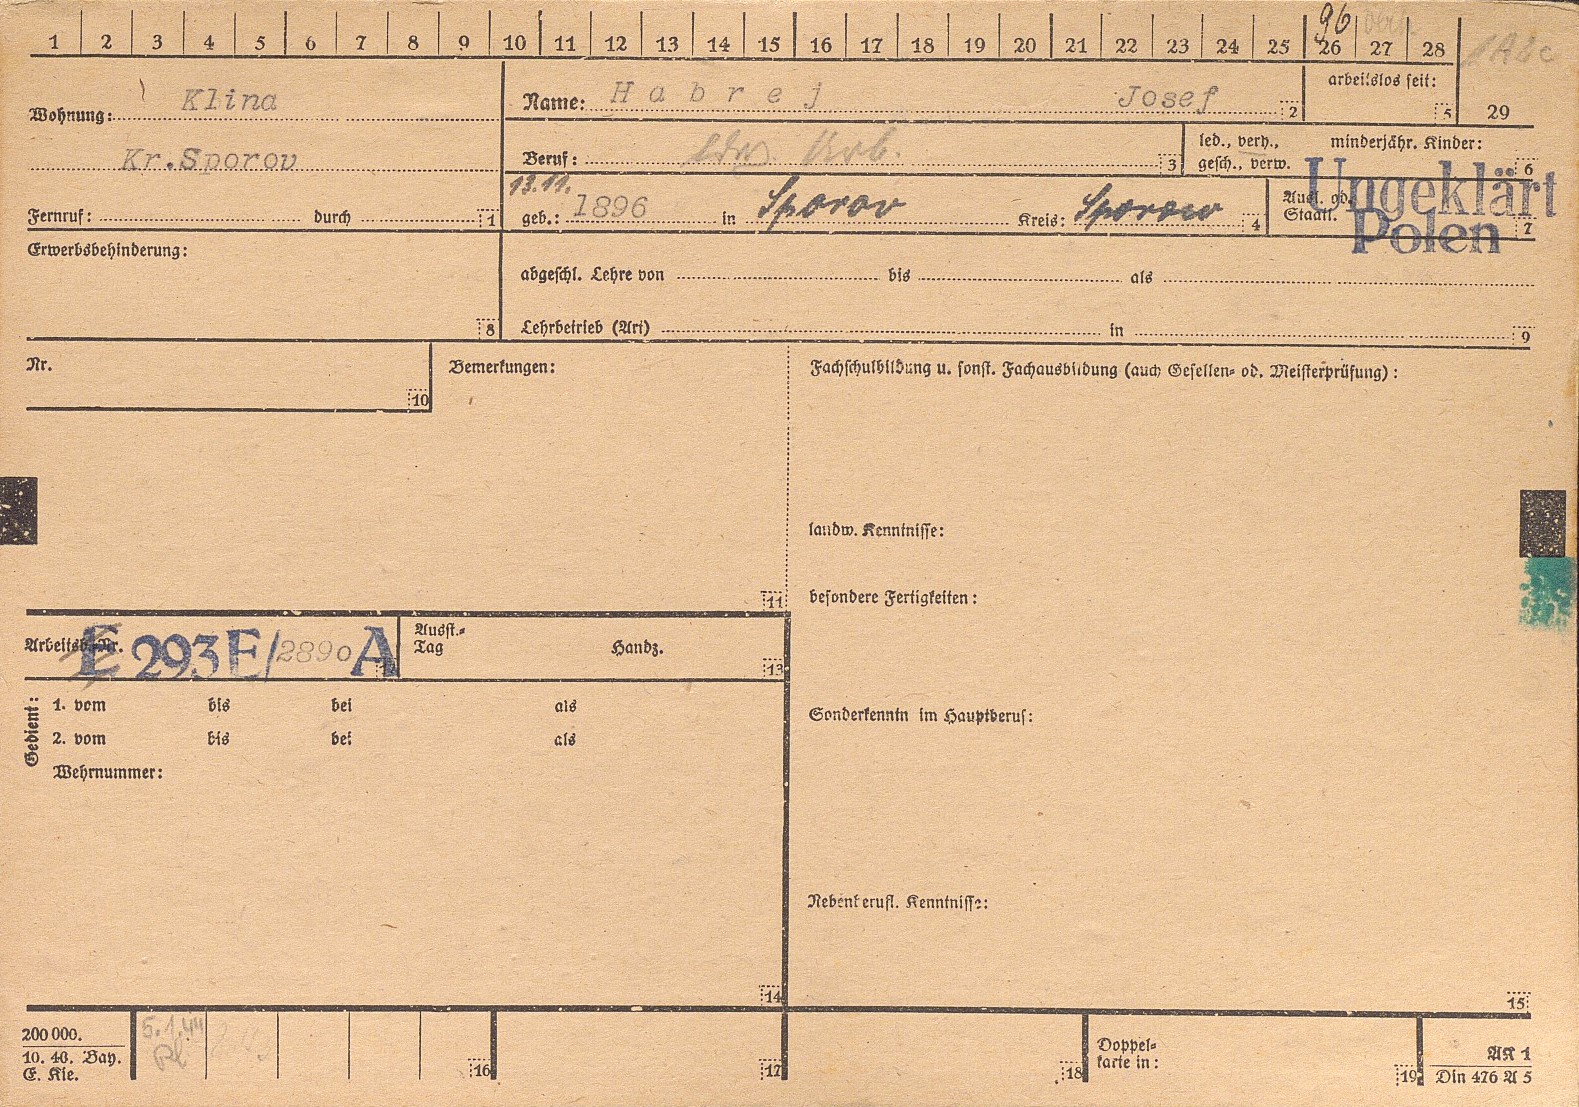 1 2 3 4 5 6 7 8 9 10 11 12 13 14 15 16 17 18 19 20 21 22 23 24 25 26 27 28
96
arbeitslos seit: 5
29
Wohnung: Klina
Kr.Sporov
Fernruf: durch 1
Name: Habrej Josef 2
Beruf: 3
led., verh., gesch., verw.
minderjähr. Kinder: 6
13.11.
geb.: 1896 in Sporov Kreis: Sporow 4
Ausl. od. Staatl. 7
Ungeklärt
Polen
Erwerbsbehinderung: 8
abgeschl. Lehre von bis als
Lehrbetrieb (Art) in 9
Nr. 10
Bemerkungen: 11
Fachschulbildung u. sonst. Fachausbildung (auch Gesellen- od. Meisterprüfung):
landw. Kenntnisse:
besondere Fertigkeiten:
Arbeitsb.-Nr. E 293E/2890 A
Ausst.-Tag Handz. 13
Gedient: 1. vom bis bei als
2. vom bis bei als
Wehrnummer: 14
Sonderkenntn im Hauptberuf:
Nebenberufl. Kenntnisse: 15
200 000.
10. 40. Bay.
E. Kie.
5.1.44
16 17 18
Doppel-
karte in: 19
AK 1
Din 476 A 5